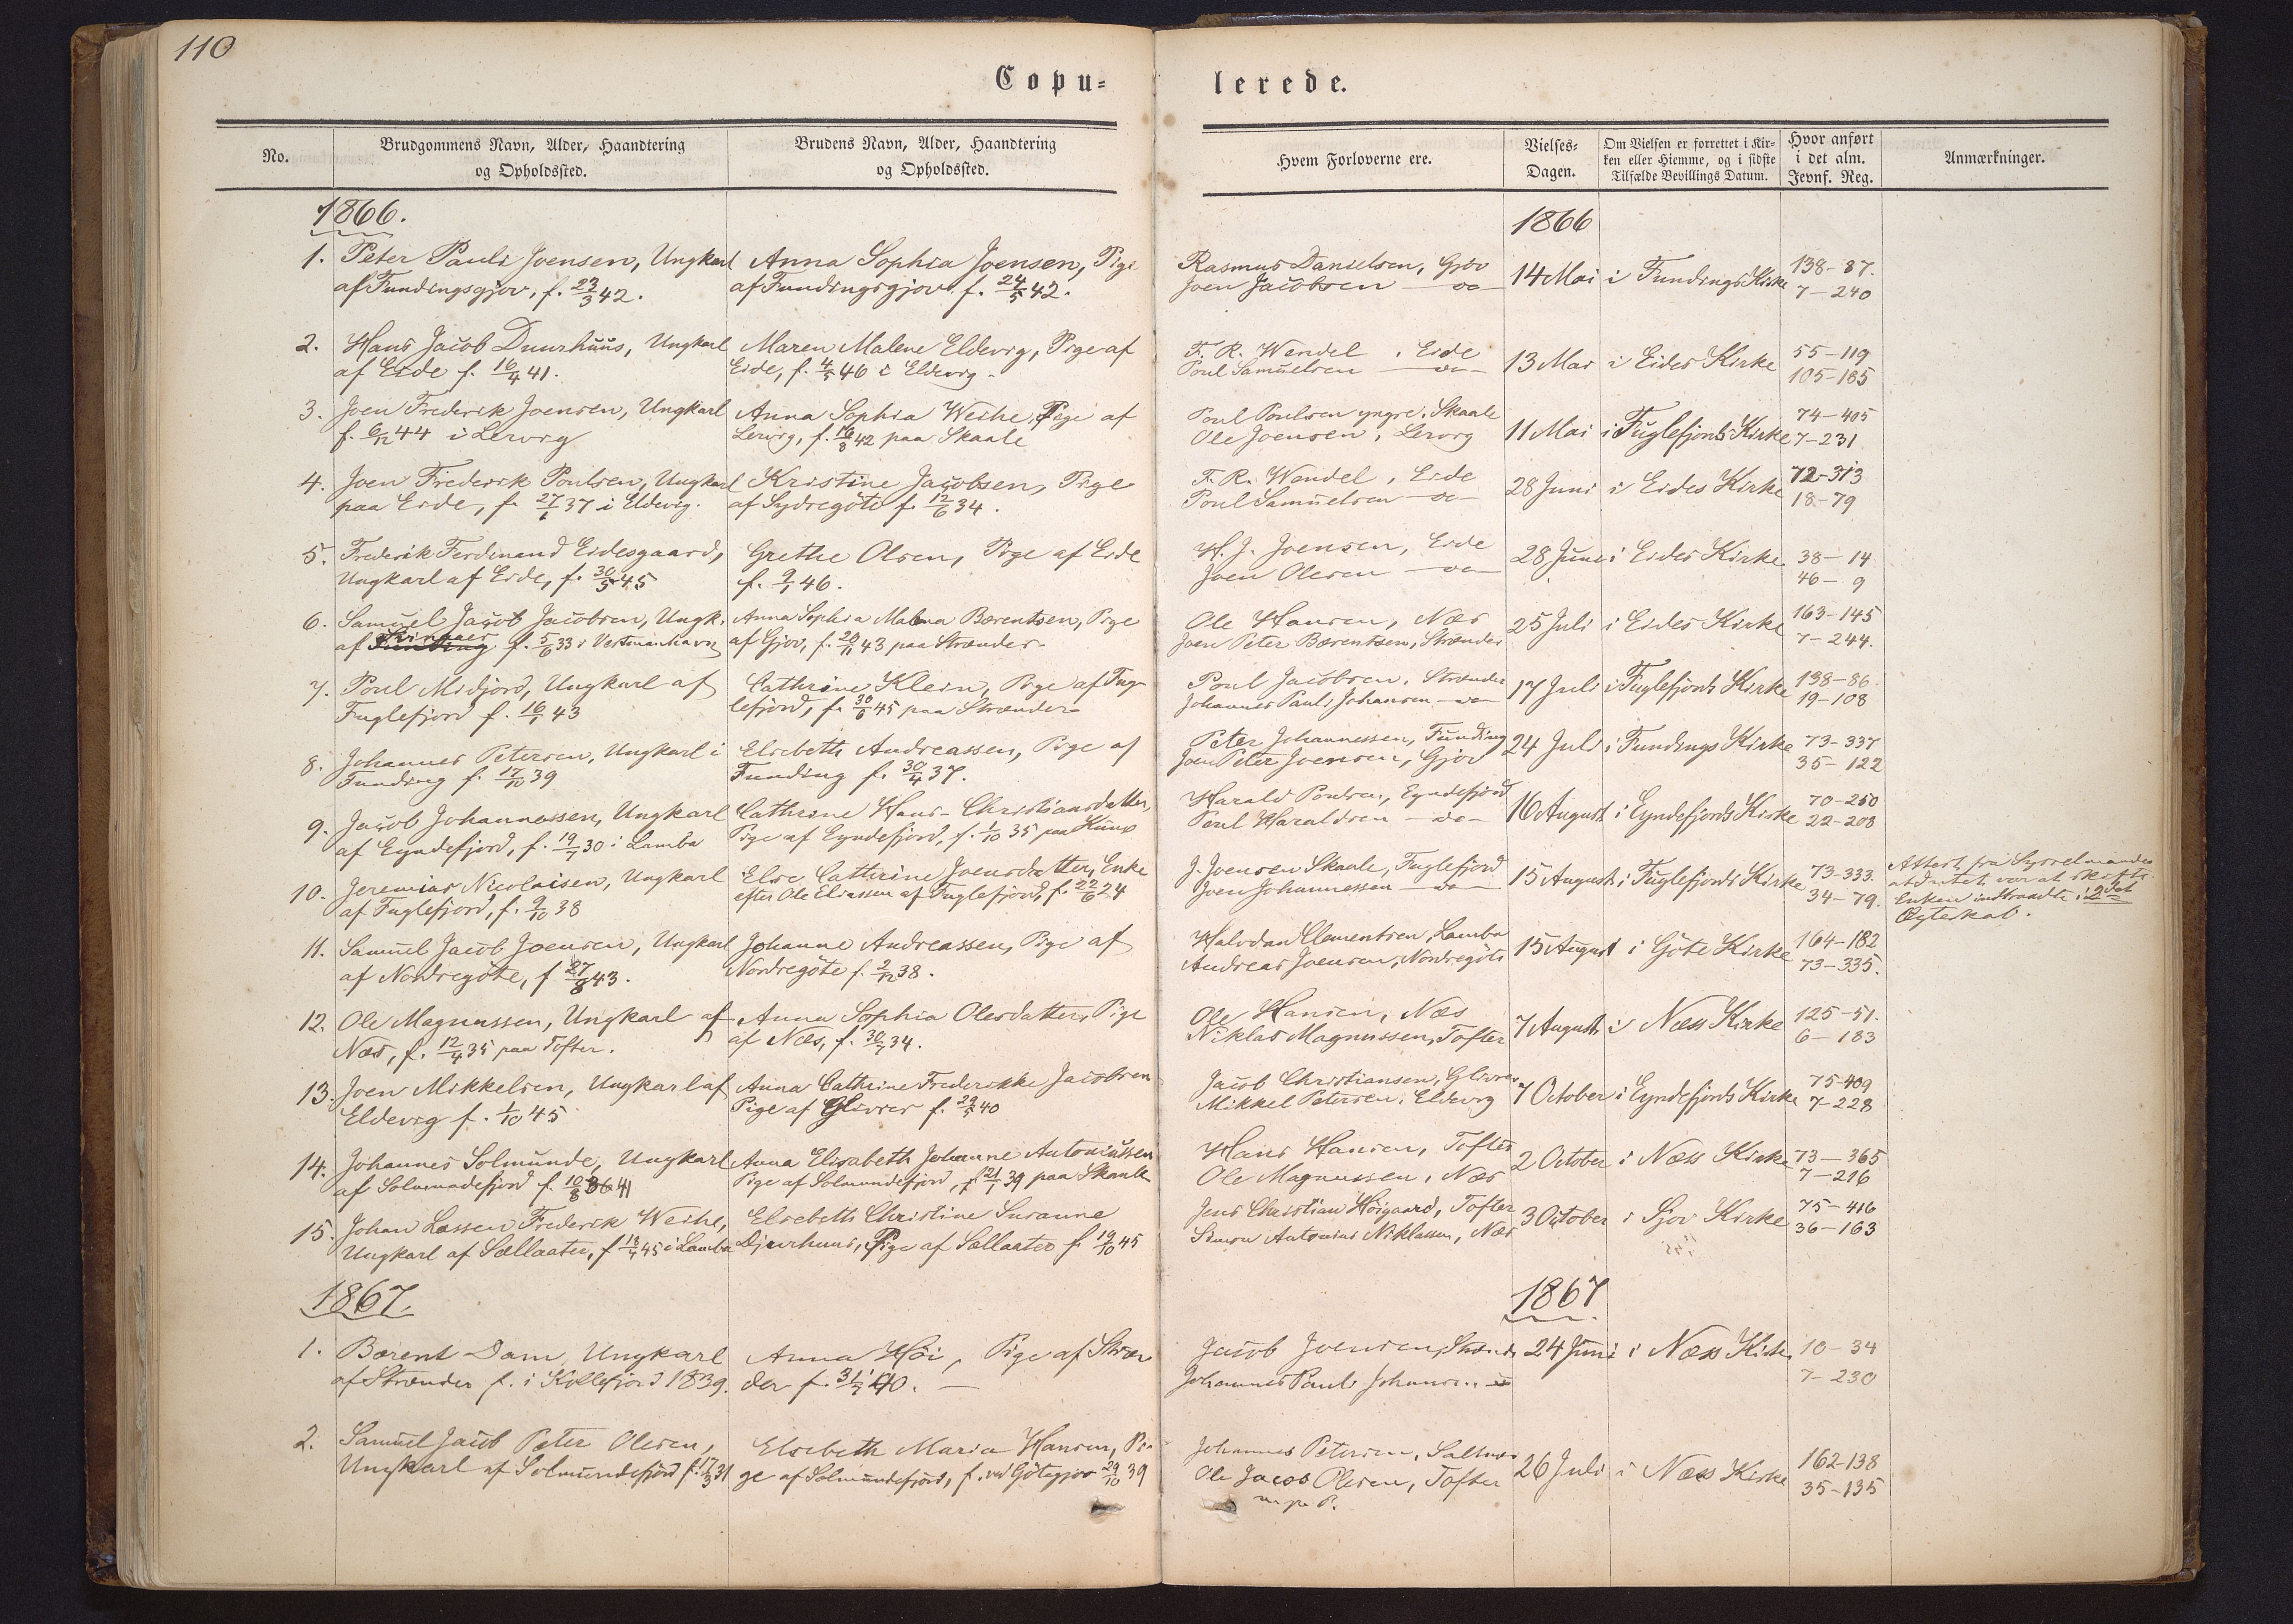 110
Copu-
lerede.
No.
Brudgommens Navn, Alder, Haandtering
og Opholdssted.
Brudens Navn, Alder, Haandtering
og Opholdssted.
Hvem Forloverne ere.
Vielses-
Dagen.
Om Vielsen er forrettet i Kir-
ken eller Hiemme, og i sidste
Tilfælde Bevillings Datum.
Hvor anført
i det alm.
Jevnf. Reg.
Anmærkninger.
1866.
1866
1. Peter Pauli Joensen, Ungkarl
af Fundingsgjov, f. 23/3 42.
Anna Sophia Joensen, Pige
af Fundingsgjov f. 24/5 42.
Rasmus Danielsen, Gjov
Joen Jacobsen — do —
14 Mai
i Fundings Kirke
138-87.
7-240
2. Hans Jacob Duurhuus, Ungkarl
af Eide f. 16/4 41.
Maren Malene Eldevig, Pige af
Eide, f. 4/5 46 i Eldevig.
F. R. Wendel, Eide
Poul Samuelsen — do —
13 Mai
i Eides Kirke
55-119
105-185
3. Joen Frederik Joensen, Ungkarl
f. 6/12 44 i Lervig
Anna Sophia Weihe, Pige af
Lervig, f. 16/8 42 paa Skaale
Poul Poulsen yngre, Skaale
Ole Joensen, Lervig
11 Mai
i Fuglefjords Kirke
74-405
7-231
4. Joen Frederik Poulsen, Ungkarl
paa Eide, f. 27/6 37 i Eldevig.
Kristine Jacobsen, Pige
af Sydregöte f. 12/6 34.
F. R. Wendel, Eide
Poul Samuelsen — do —
28 Juni
i Eides Kirke
72-313
18-79
5. Frederik Ferdinand Eidesgaard,
Ungkarl af Eide, f. 30/5 45
Grethe Olsen, Pige af Eide
f. 9/1 46.
H. J. Joensen, Eide
Joen Olesen — do —
28 Juni
i Eides Kirke
38-14
46-9
6. Samuel Jacob Jacobsen, Ungk.
af f. 5/6 33 i Vestmanhavn
Anna Sophia Malena Bærentsen, Pige
af Gjov, f. 20/11 43 paa Strænder
Ole Hansen, Næs
Joen Peter Bærentsen, Strænder
25 Juli
i Eides Kirke
163-145
7-244.
7. Poul Midjord, Ungkarl af
Fuglefjord f. 16/1 43
Cathrine Klein, Pige af Fug-
lefjord, f. 30/6 45 paa Strænder
Poul Jacobsen, Strænder
Johannes Pauli Johansen — do —
17 Juli
i Fuglefjords Kirke
138-86
19-108
8. Johannes Petersen, Ungkarl i
Funding f. 17/10 39
Elsebeth Andreassen, Pige af
Funding f. 30/4 37.
Peter Johannessen, Funding
Joen Peter Joensen, Gjov
24 Juli
i Fundings Kirke
73-337
35-122
9. Jacob Johannessen, Ungkarl
af Eyndefjord, f. 19/7 30 i Lamba
Cathrine Hans-Christiansdatter,
Pige af Eyndefjord, f. 1/10 35 paa Kunø
Harald Poulsen, Eyndefjord
Poul Haraldsen — do —
16 August
i Eyndefjords Kirke
70-250
22-208
10. Jeremias Nicolaisen, Ungkarl
af Fuglefjord, f. 9/10 38
Else Cathrine Joensdatter, Enke
efter Ole Eliassen af Fuglefjord, f. 22/6 24
J. Joensen Skaale, Fuglefjord
Joen Johannessen — do —
15 August
i Fuglefjords Kirke
73-333.
34-79.
Attest fra Sysselmanden
at Intet var at skifte
Enken indtraadte i 2det
Ægteskab.
11. Samuel Jacob Joensen, Ungkarl
af Nordregöte, f 27/8 43.
Johanne Andreassen, Pige af
Nordregöte f. 2/12 38.
Halvdan Clementsen, Lamba
Andreas Joensen, Nordregöte
15 August
i Göte Kirke
164-182
73-335.
12. Ole Magnussen, Ungkarl af
Næs, f. 12/4 35 paa Tofter.
Anna Sophia Olesdatter, Pige
af Næs, f. 30/7 34.
Ole Hansen, Næs
Niklas Magnussen, Tofter
7 August
i Næs Kirke
125-51.
6-183
13. Joen Mikkelsen, Ungkarl af
Eldevig f. 1/10 45
Anna Cathrine Frederikke Jacobsen
Pige af Glivrer f. 29/5 40
Jacob Christiansen, Glivrer
Mikkel Petersen, Eldevig
7 October
i Eyndefjords Kirke
75-409
7-228
14. Johannes Solmunde, Ungkarl
af Solmundefjord f. 10/8 41
Anna Elisabeth Johanne Antoniussen
Pige af Solmundefjord, f. 21/1 39 paa Skaale
Hans Hansen, Tofter
Ole Magnussen, Næs
2 October
i Næss Kirke
73-365
7-216
15. Johan Lassen Frederik Weihe,
Ungkarl af Sællaater, f 18/7 45 i Lamba
Elsebeth Christine Susanne
Djurhuus, Pige af Sællaater f. 19/10 45
Jens Christian Höigaard, Tofter
Simon Antonius Niklassen, Næs
3 October
i Sjov Kirke
75-416
36-163
1867.
1867
1. Bærent Dam, Ungkarl
af Strænder f. i Kollefjord 1839.
Anna Höi, Pige af Stræn-
der f. 31/7 40. —
Jacob Joensen, Strænd.
Johannes Pauli Johansen do
24 Juni
i Næss Kirke
10-34
7-230
2. Samuel Jacob Peter Olesen,
Ungkarl af Solmundefjord f. 17/3 31
Elsebeth Maria Hansen, Pi-
ge af Solmundefjord, f. ved Götegjov 29/10 39
Johannes Petersen, Saltnæs
Ole Jacob Olesen, Tofter
m. p. P.
26 Juli
i Næss Kirke
162-138
35-135